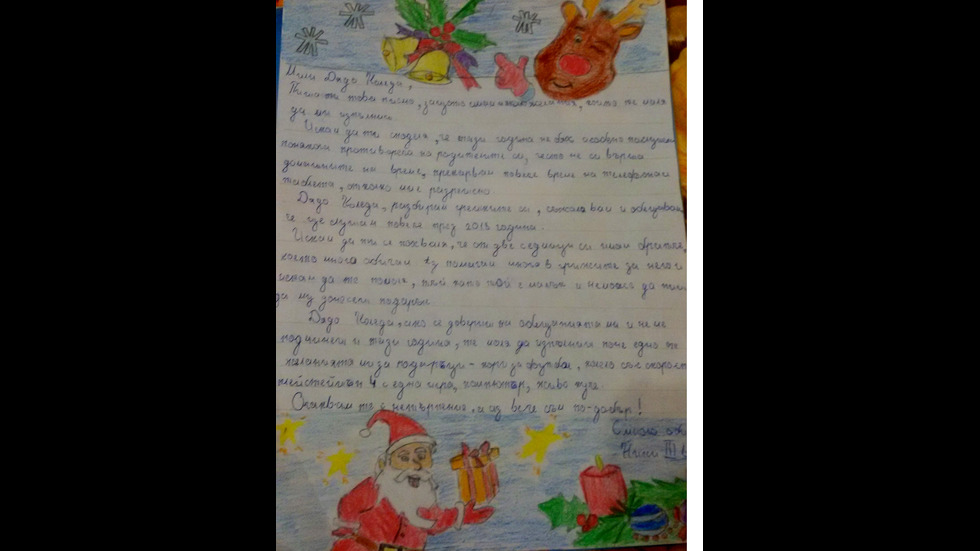 Мили Дядо Коледа,
Пиша ти това писмо, защото имам много желания, които те моля
да ми изпълниш.
Искам да ти споделя, че тази година не бях особено послушен
понякога противореча на родителите си, често не си пиша
домашните на време, прекарвам повече време на телефона и
таблета, отколко ми е разрешено.
Дядо Коледа, разбирам грешките си, съжалявам и обещавам
че ще слушам повече през 2019 година.
Искам да ти се похваля, че от две седмици си имам братче,
което много обичам. Аз помагам много в грижите за него и
искам да те помоля, тъй като той е малък и неможе да пише
да му донесеш подарък.
Дядо Коледа, ако се довериш на обещанията ми и че не
подмине и тази година, те моля да изпълниш поне едно от
желанията ми за подаръци - корт за футбол, колело със скорости
плейстейшън 4 с една игра, компютър, живо куче.
Очаквам те с нетърпение, а аз вече съм по-добър!
С много
Ники III в